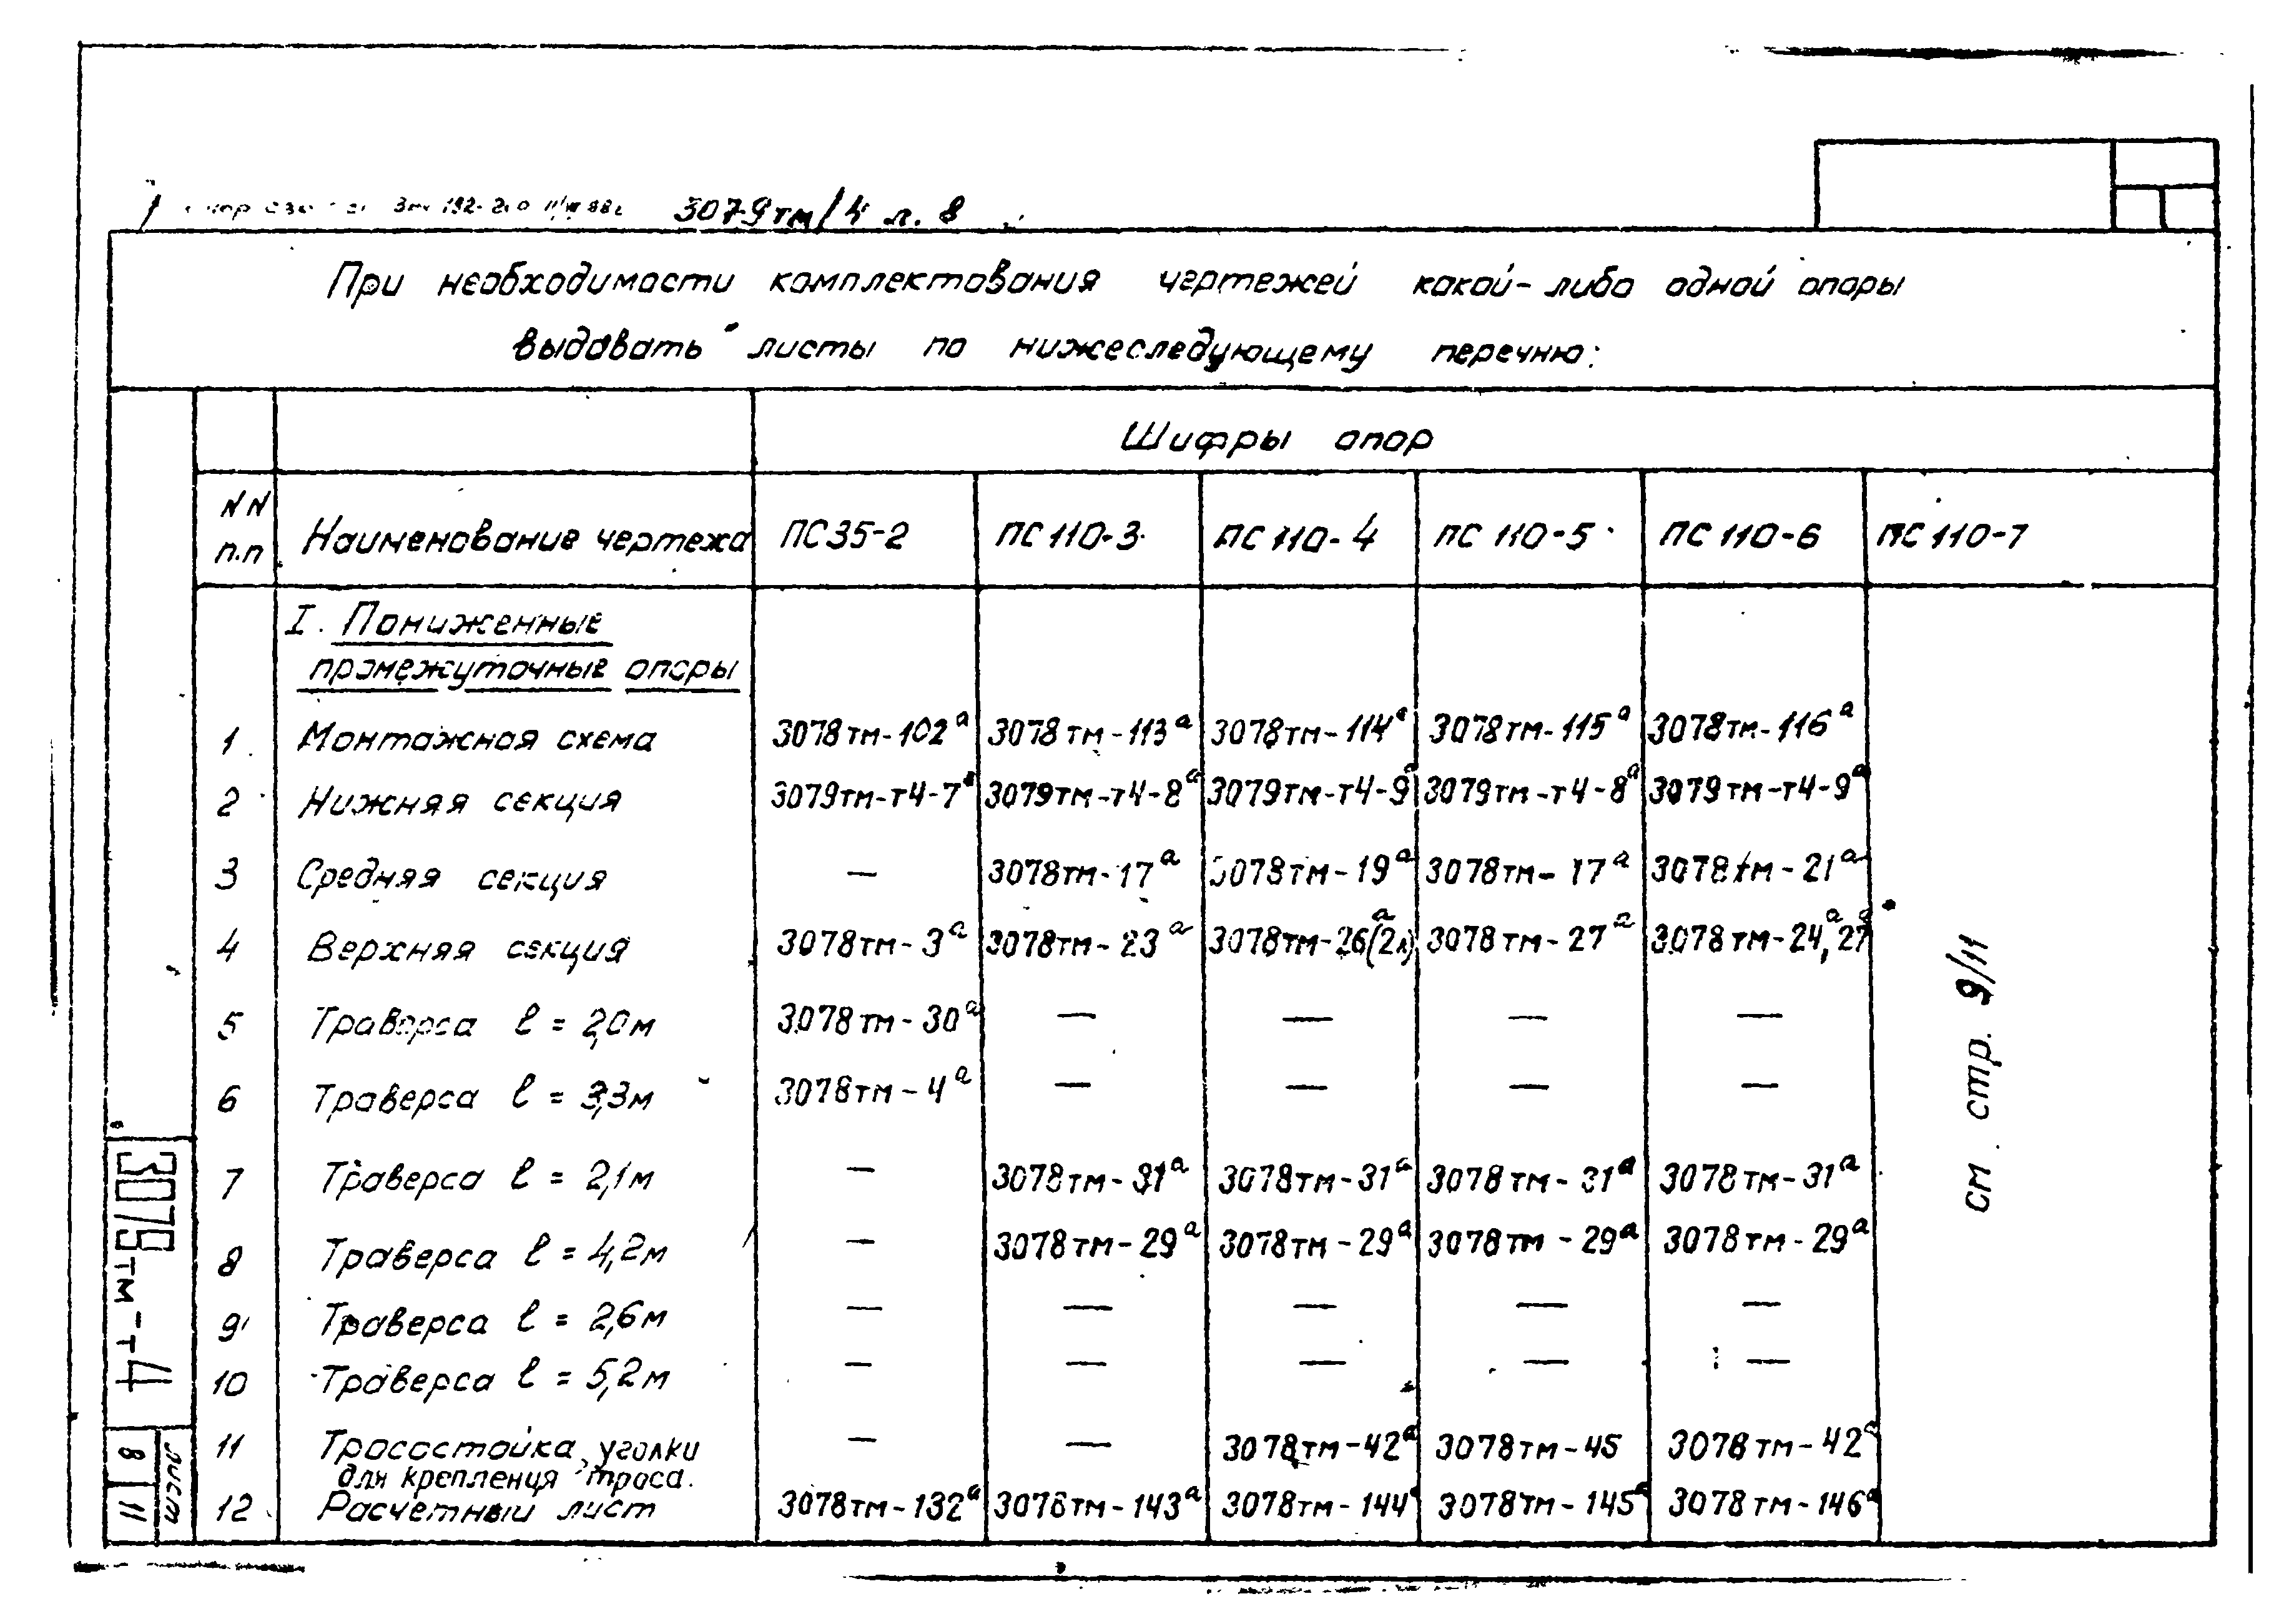 3079тм/4 л. 8
При необходимости комплектования чертежей какой-либо одной опоры
выдавать листы по нижеследующему перечню:
Шифры опор
NN п.п Наименование чертежа ПС35-2 ПС 110-3 ПС 110-4 ПС 110-5 ПС 110-6 ПС 110-7
I. Пониженные
промежуточные опоры
1 Монтажная схема 3078тм-102ᵃ 3078тм-113ᵃ 3078тм-114ᵃ 3078тм-115ᵃ 3078тм-116ᵃ
2 Нижняя секция 3079тм-т4-7ᵃ 3079тм-т4-8ᵃ 3079тм-т4-9ᵃ 3079тм-т4-8ᵃ 3079тм-т4-9ᵃ
3 Средняя секция — 3078тм-17ᵃ 3078тм-19ᵃ 3078тм-17ᵃ 3078тм-21ᵃ
4 Верхняя секция 3078тм-3ᵃ 3078тм-23ᵃ 3078тм-26ᵃ(2л) 3078тм-27ᵃ 3078тм-24ᵃ,27ᵃ
5 Траверса ℓ = 2,0м 3078тм-30ᵃ — — — —
6 Траверса ℓ = 3,3м 3078тм-4ᵃ — — — —
7 Траверса ℓ = 2,1м — 3078тм-31ᵃ 3078тм-31ᵃ 3078тм-31ᵃ 3078тм-31ᵃ
8 Траверса ℓ = 4,2м — 3078тм-29ᵃ 3078тм-29ᵃ 3078тм-29ᵃ 3078тм-29ᵃ
9 Траверса ℓ = 2,6м — — — — —
10 Траверса ℓ = 5,2м — — — — —
11 Тросостойка, уголки — — 3078тм-42ᵃ 3078тм-45 3078тм-42ᵃ
для крепления троса.
12 Расчетный лист 3078тм-132ᵃ 3078тм-143ᵃ 3078тм-144ᵃ 3078тм-145ᵃ 3078тм-146ᵃ
см. стр. 9/11
3079тм-т4
лист
8 11